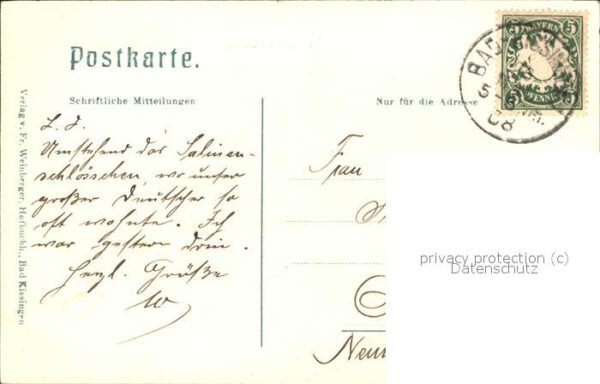 Postkarte.
Schriftliche Mitteilungen
Nur für die Adresse
L. J.
Umstehend das Salinen-
schlösschen, wo unser
großer Deutscher so
oft wohnte. Ich
war gestern drin.
Herzl. Grüße
W
Frau
Neu
Verlag v. Fr. Weinberger, Hofbuchh., Bad Kissingen
BAYERN
5 5
PFENNIG
BAD KISSINGEN
08
privacy protection (c)
Datenschutz